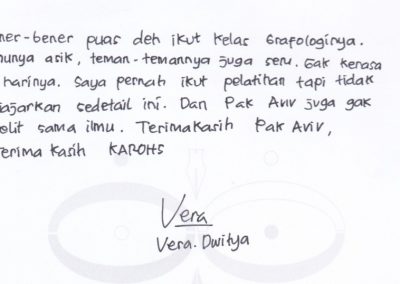 ner-bener puas deh ikut kelas Grafologinya.
nunya asik, teman-temannya juga seru. Gak kerasa
harinya. Saya pernah ikut pelatihan tapi tidak
iajarkan sedetail ini. Dan Pak Aviv juga gak
olit sama ilmu. Terimakasih Pak Aviv,
erima kasih KAROHS
Vera
Vera. Dwitya